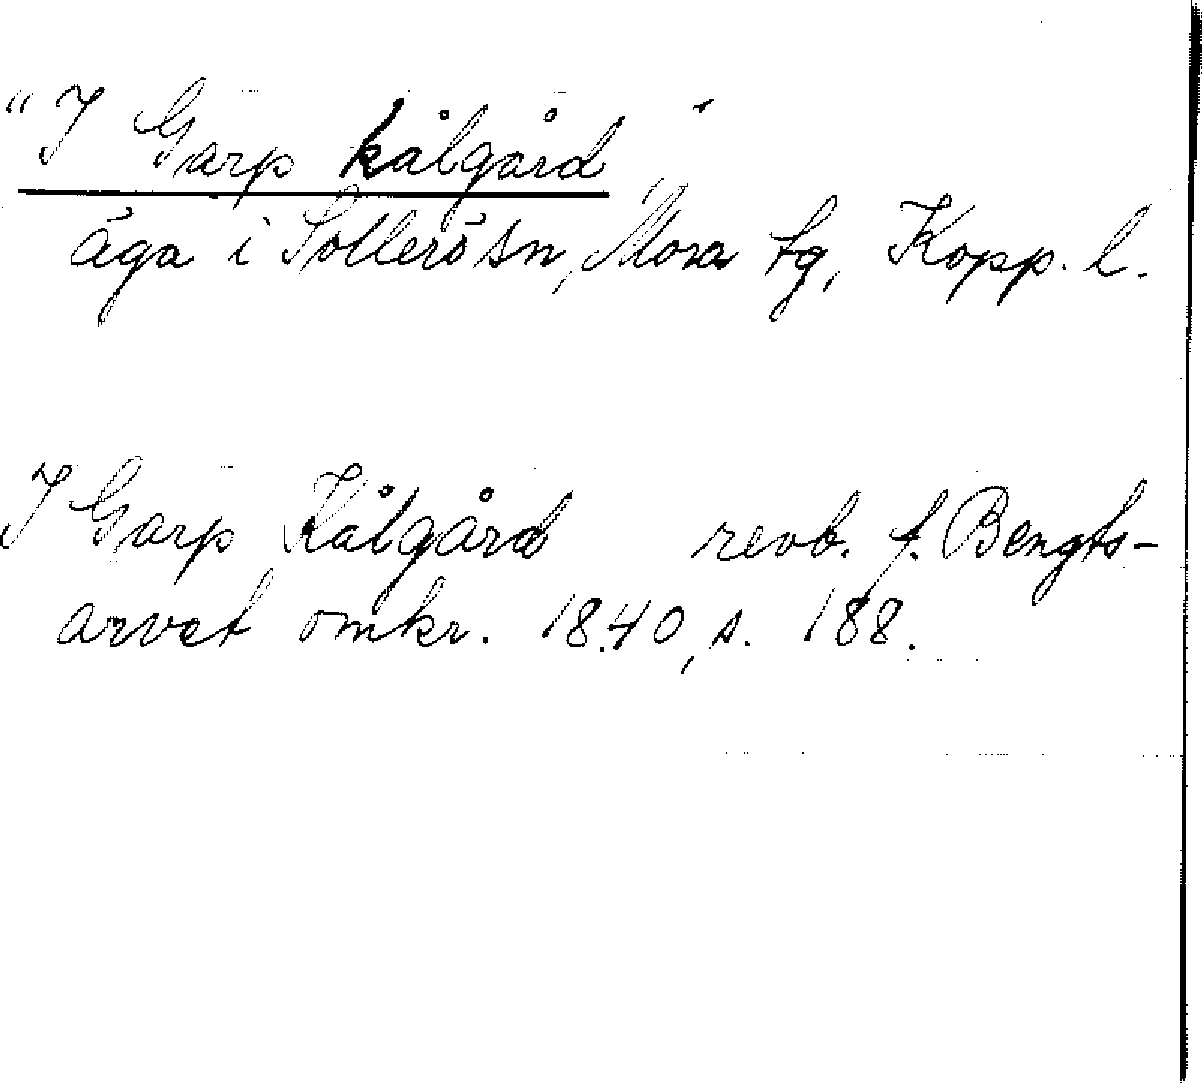 "I Garp kålgård"
äga i Sollerö sn, Mora tg, Kopp. l.
I Garp Kålgård revb. f. Bengts-
arvet omkr. 1840, s. 188.